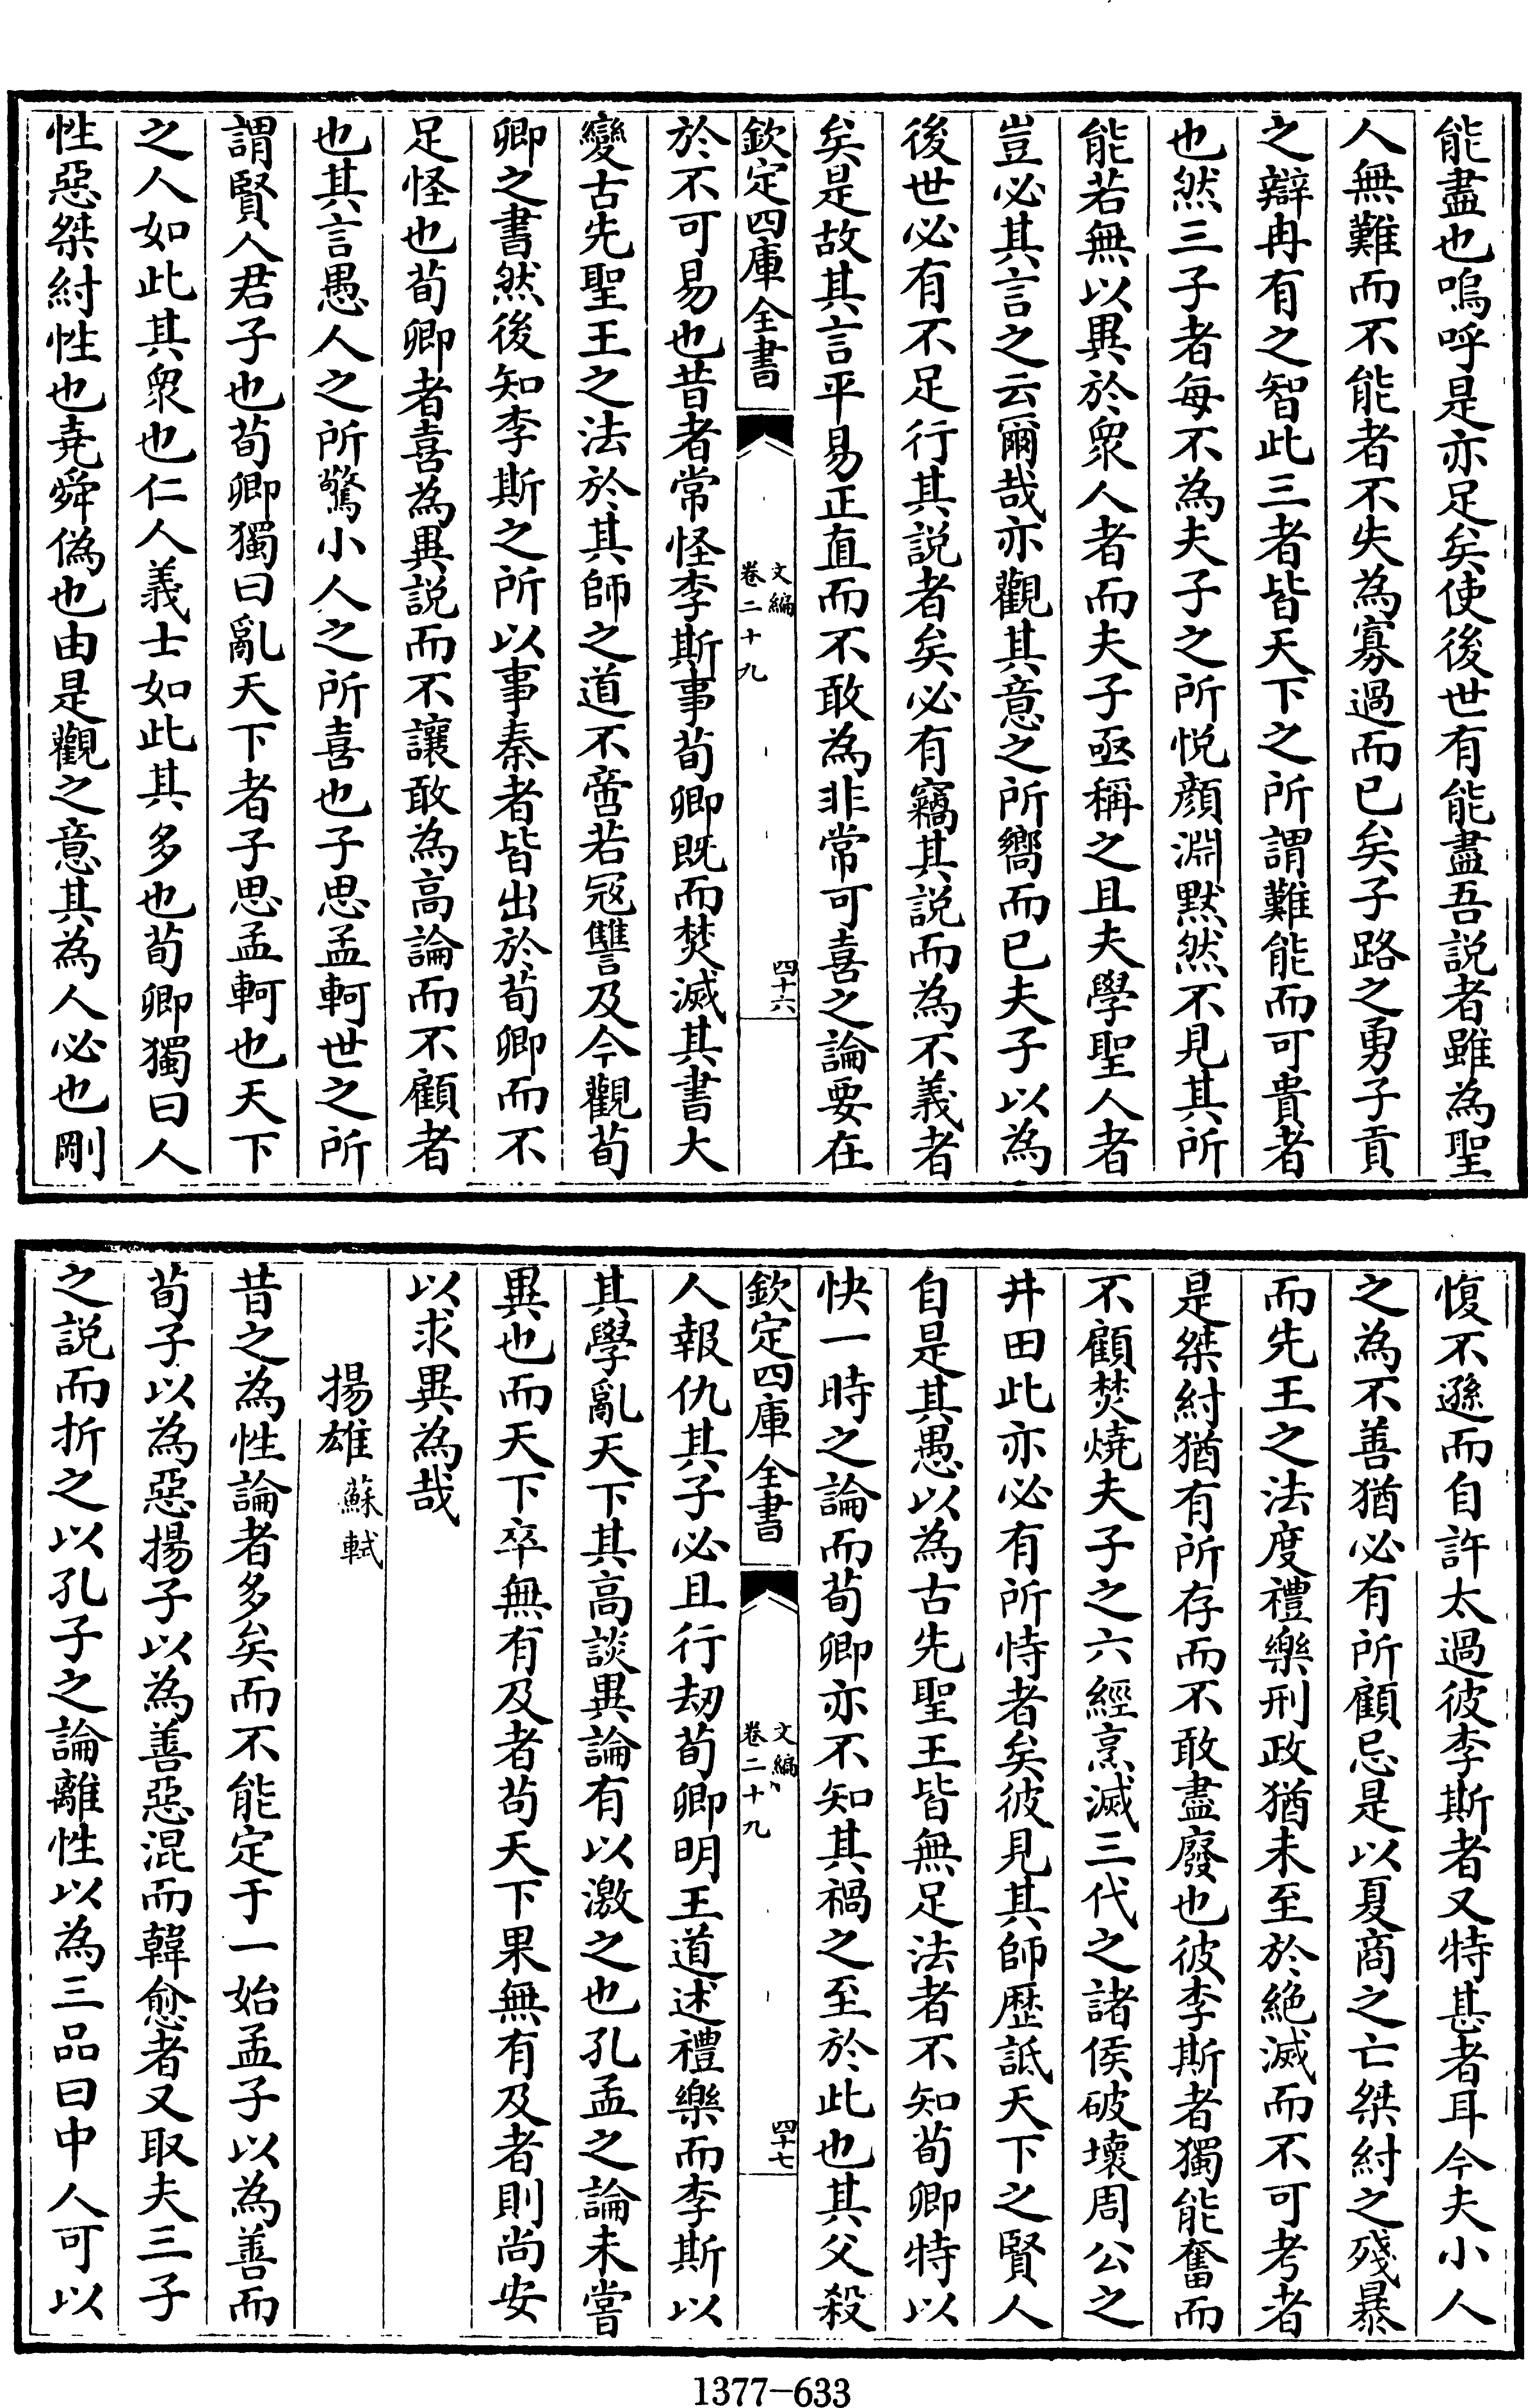 能盡也嗚呼是亦足矣使後世有能盡吾説者雖為聖
人無難而不能者不失為寡過而已矣子路之勇子貢
之辯冉有之智此三者皆天下之所謂難能而可貴者
也然三子者每不為夫子之所悅顔淵黙然不見其所
能若無以異於衆人者而夫子亟稱之且夫學聖人者
豈必其言之云爾哉亦觀其意之所嚮而已夫子以為
後世必有不足行其説者矣必有竊其説而為不義者
矣是故其言平易正直而不敢為非常可喜之論要在
欽定四庫全書
文編
卷二十九
四十六
於不可易也昔者常怪李斯事荀卿既而焚滅其書大
變古先聖王之法於其師之道不啻若冦讐及今觀荀
卿之書然後知李斯之所以事秦者皆出於荀卿而不
足怪也荀卿者喜為異説而不讓敢為高論而不顧者
也其言愚人之所驚小人之所喜也子思孟軻世之所
謂賢人君子也荀卿獨曰亂天下者子思孟軻也天下
之人如此其衆也仁人義士如此其多也荀卿獨曰人
性惡桀紂性也堯舜偽也由是觀之意其為人必也剛
愎不遜而自許太過彼李斯者又特甚者耳今夫小人
之為不善猶必有所顧忌是以夏商之亡桀紂之殘暴
而先王之法度禮樂刑政猶未至於絶滅而不可考者
是桀紂猶有所存而不敢盡廢也彼李斯者獨能奮而
不顧焚燒夫子之六經烹滅三代之諸侯破壞周公之
井田此亦必有所恃者矣彼見其師歴詆天下之賢人
自是其愚以為古先聖王皆無足法者不知荀卿特以
快一時之論而荀卿亦不知其禍之至於此也其父殺
欽定四庫全書
文編
卷二十九
四十七
人報仇其子必且行劫荀卿明王道述禮樂而李斯以
其學亂天下其高談異論有以激之也孔孟之論未嘗
異也而天下卒無有及者茍天下果無有及者則尚安
以求異為哉
揚雄 蘇軾
昔之為性論者多矣而不能定于一始孟子以為善而
荀子以為惡揚子以為善惡混而韓愈者又取夫三子
之説而折之以孔子之論離性以為三品曰中人可以
1377-633